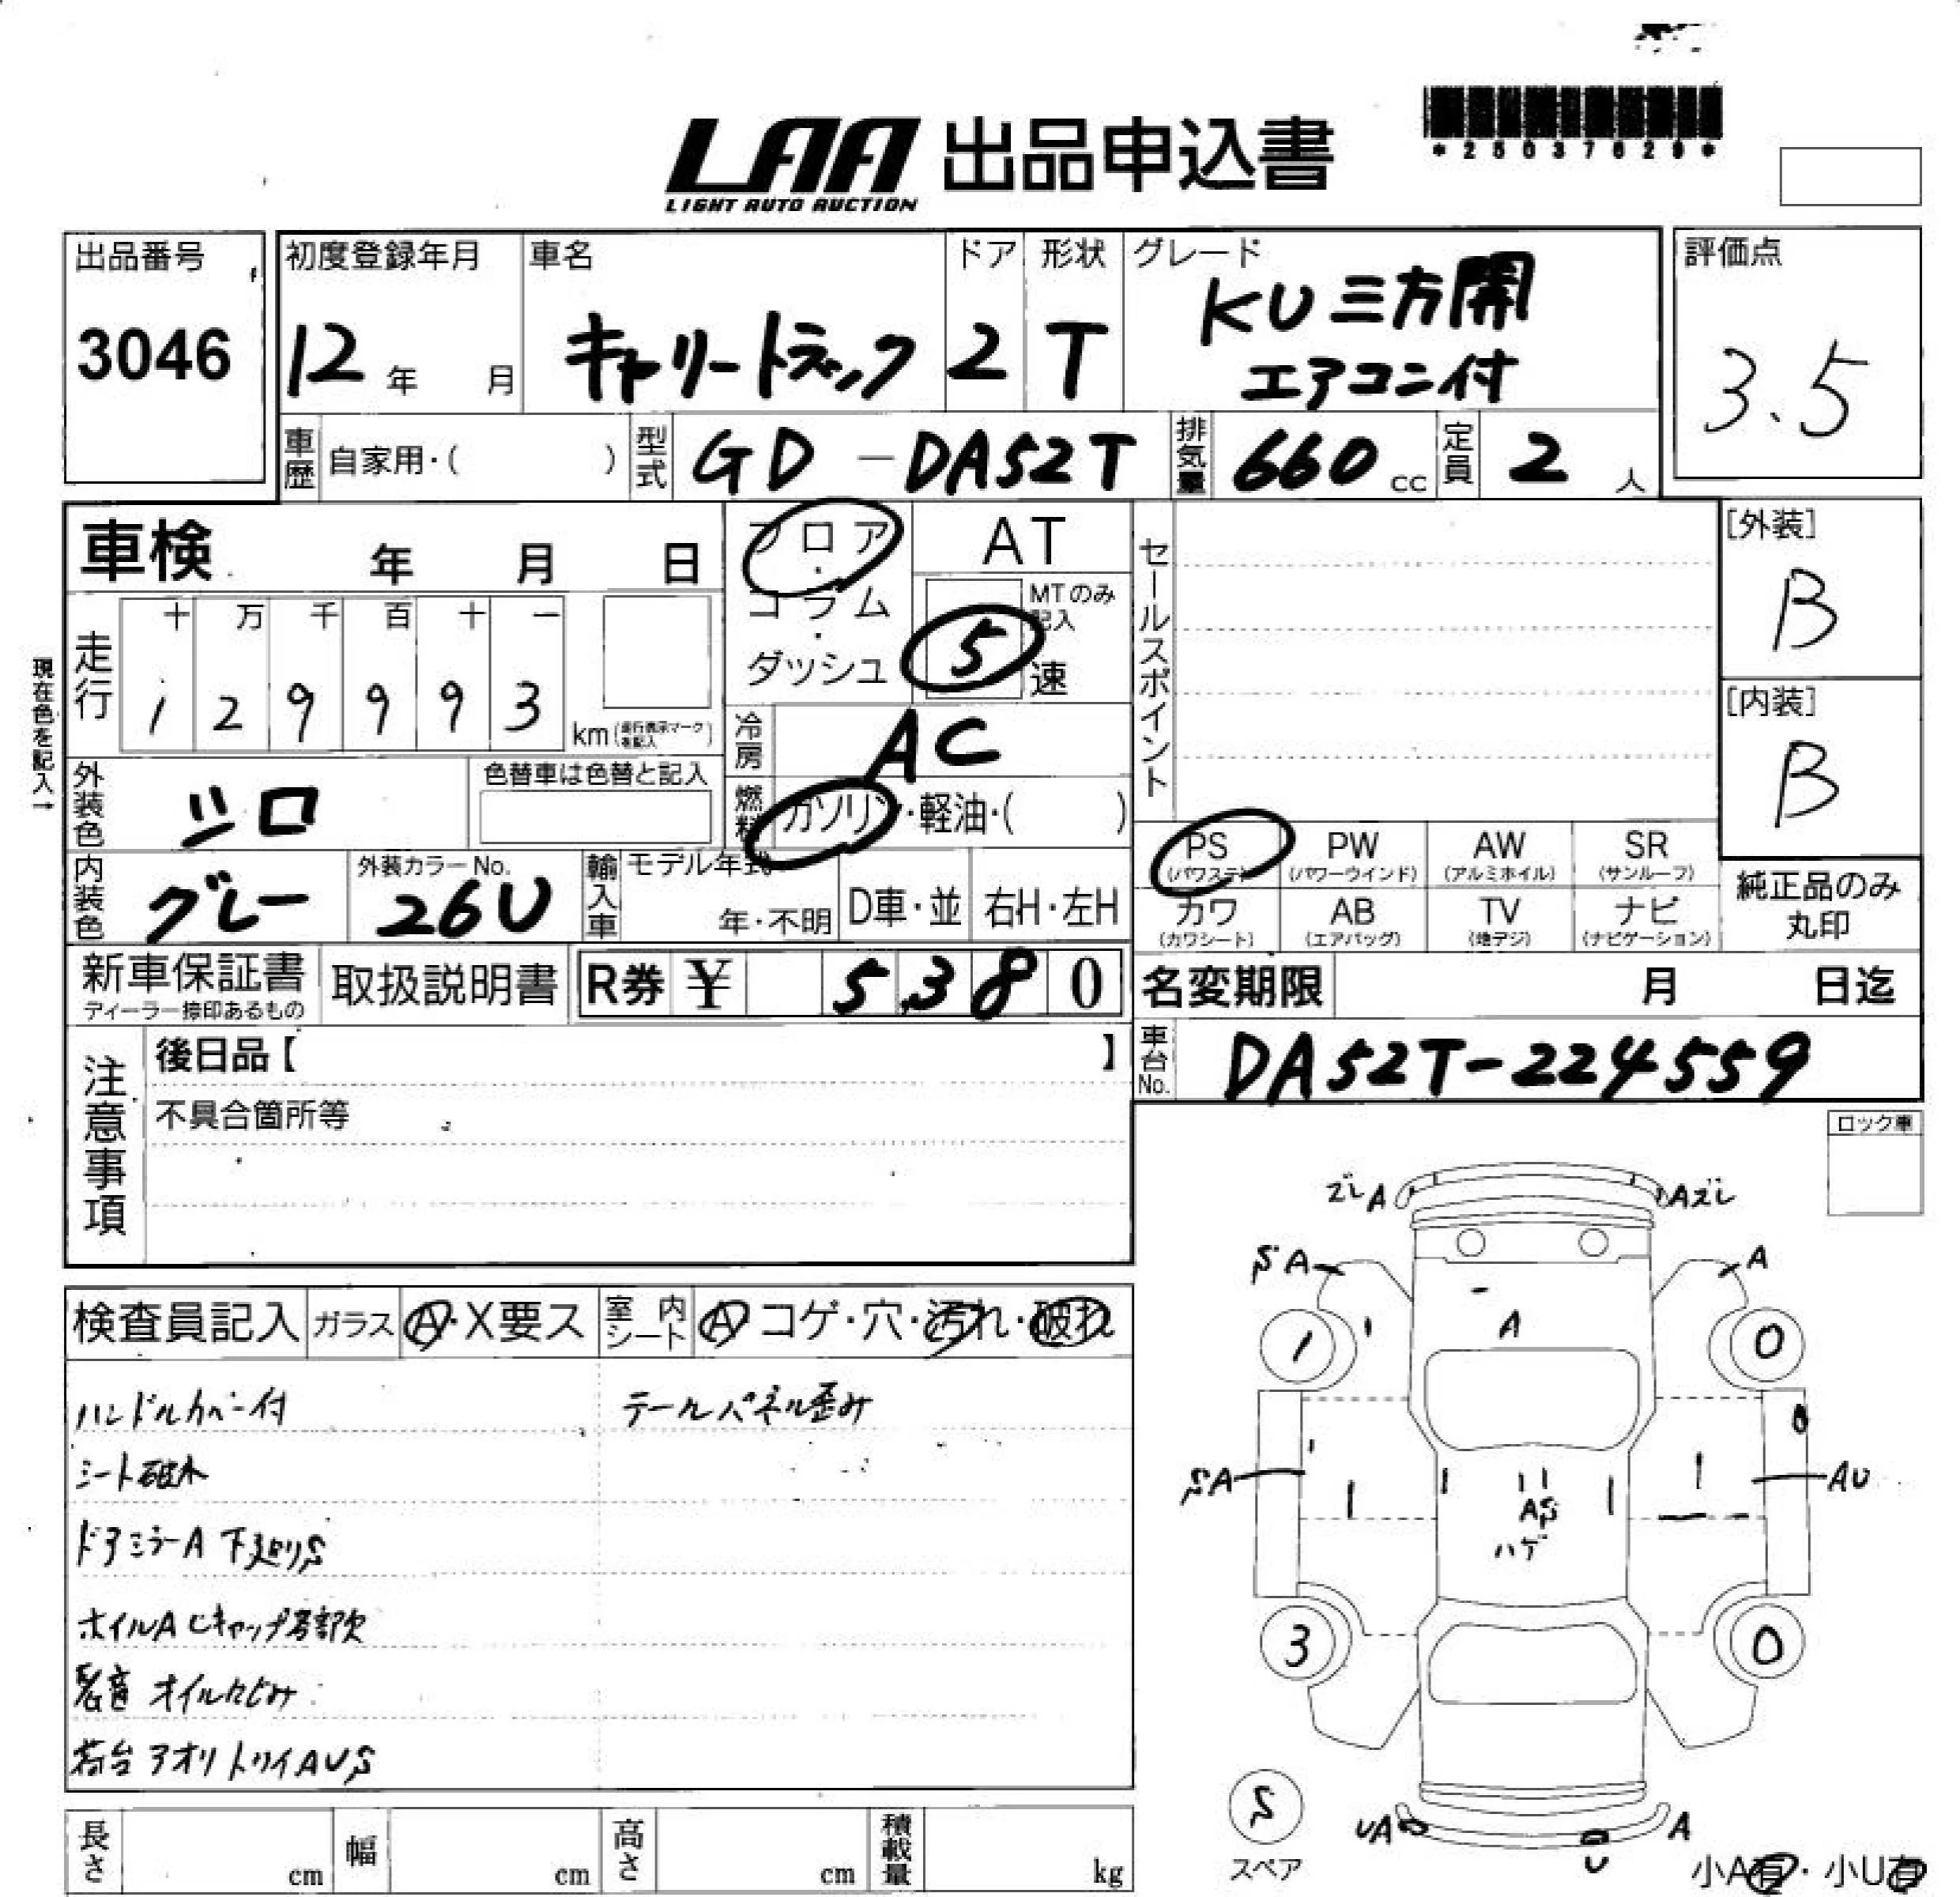 *25037629*
LAA 出品申込書
LIGHT AUTO AUCTION
出品番号
3046
初度登録年月
12年 月
車名
キャリートラック
ドア
2
形状
T
グレード
KU三方開
エアコン付
評価点
3.5
車歴 自家用・( )
型式 GD-DA52T
排気量 660 cc
定員 2 人
車検 年 月 日
フロア・コラム・ダッシュ
AT
MTのみ記入
5速
セールスポイント
[外装]
B
[内装]
B
現在色を記入→
走行
十 万 千 百 十 一
1 2 9 9 9 3
km (走行表示マークを記入)
冷房 AC
外装色 シロ
色替車は色替と記入
燃料 ガソリン・軽油・( )
PS (パワステ)
PW (パワーウインド)
AW (アルミホイル)
SR (サンルーフ)
カワ (カワシート)
AB (エアバッグ)
TV (地デジ)
ナビ (ナビゲーション)
純正品のみ丸印
内装色 グレー
外装カラーNo.
26U
輸入車 モデル年式
年・不明
D車・並
右H・左H
新車保証書
ディーラー捺印あるもの
取扱説明書
R券 ¥ 5380
名変期限 月 日迄
車台No. DA52T-224559
注意事項
後日品【 】
不具合箇所等
ロック車
検査員記入
ガラス A・X要ス
室内シート A コゲ・穴・汚れ・破れ
ハンドルカバー付
テールパネル歪み
シート破れ
ドアミラーA 下廻りS
ホイルA
オイルにじみ
荷台アオリトリイAUS
ズレA
Aズレ
SA
A
A
1
0
SA
AS
ハゲ
AU
3
0
S
スペア
UA
U
A
小A有・小U有
長さ cm
幅 cm
高さ cm
積載量 kg